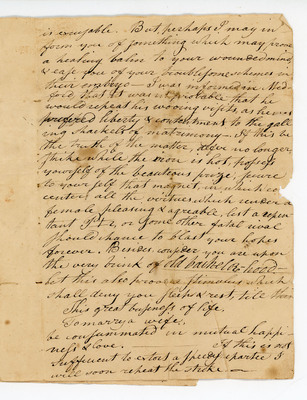 is excusable. But perhaps I may in
form you of something which may prove
a healing balm to your wounded mind,
& ease you of your troublesome schemes in
their embryo I was informed in Med
ford that it was improbable that he
would repeat his wooing visits as he
preferred liberty & contentment to the gall
ing shackels of matrimony. If this be
the truth of the matter, defer no longer,
strike while the iron is hot, possess
yourself of the beauteous prize, secure
to your self that magnet, in which co
center, all the virtues which render a
female pleasing & agreeable, lest a repen
tant or some other fatal rival
should chance to blast your hopes
forever. Besides consider you are upon
the very brink of old bachelorhood
let this also prove a stimulus which
shall deny you sleep & rest, till
This great business of life,
To marry a wife,
be consummated in mutual happi
ness & love. If this is not
sufficient to extort a speedy I
will soon repeat the stroke.